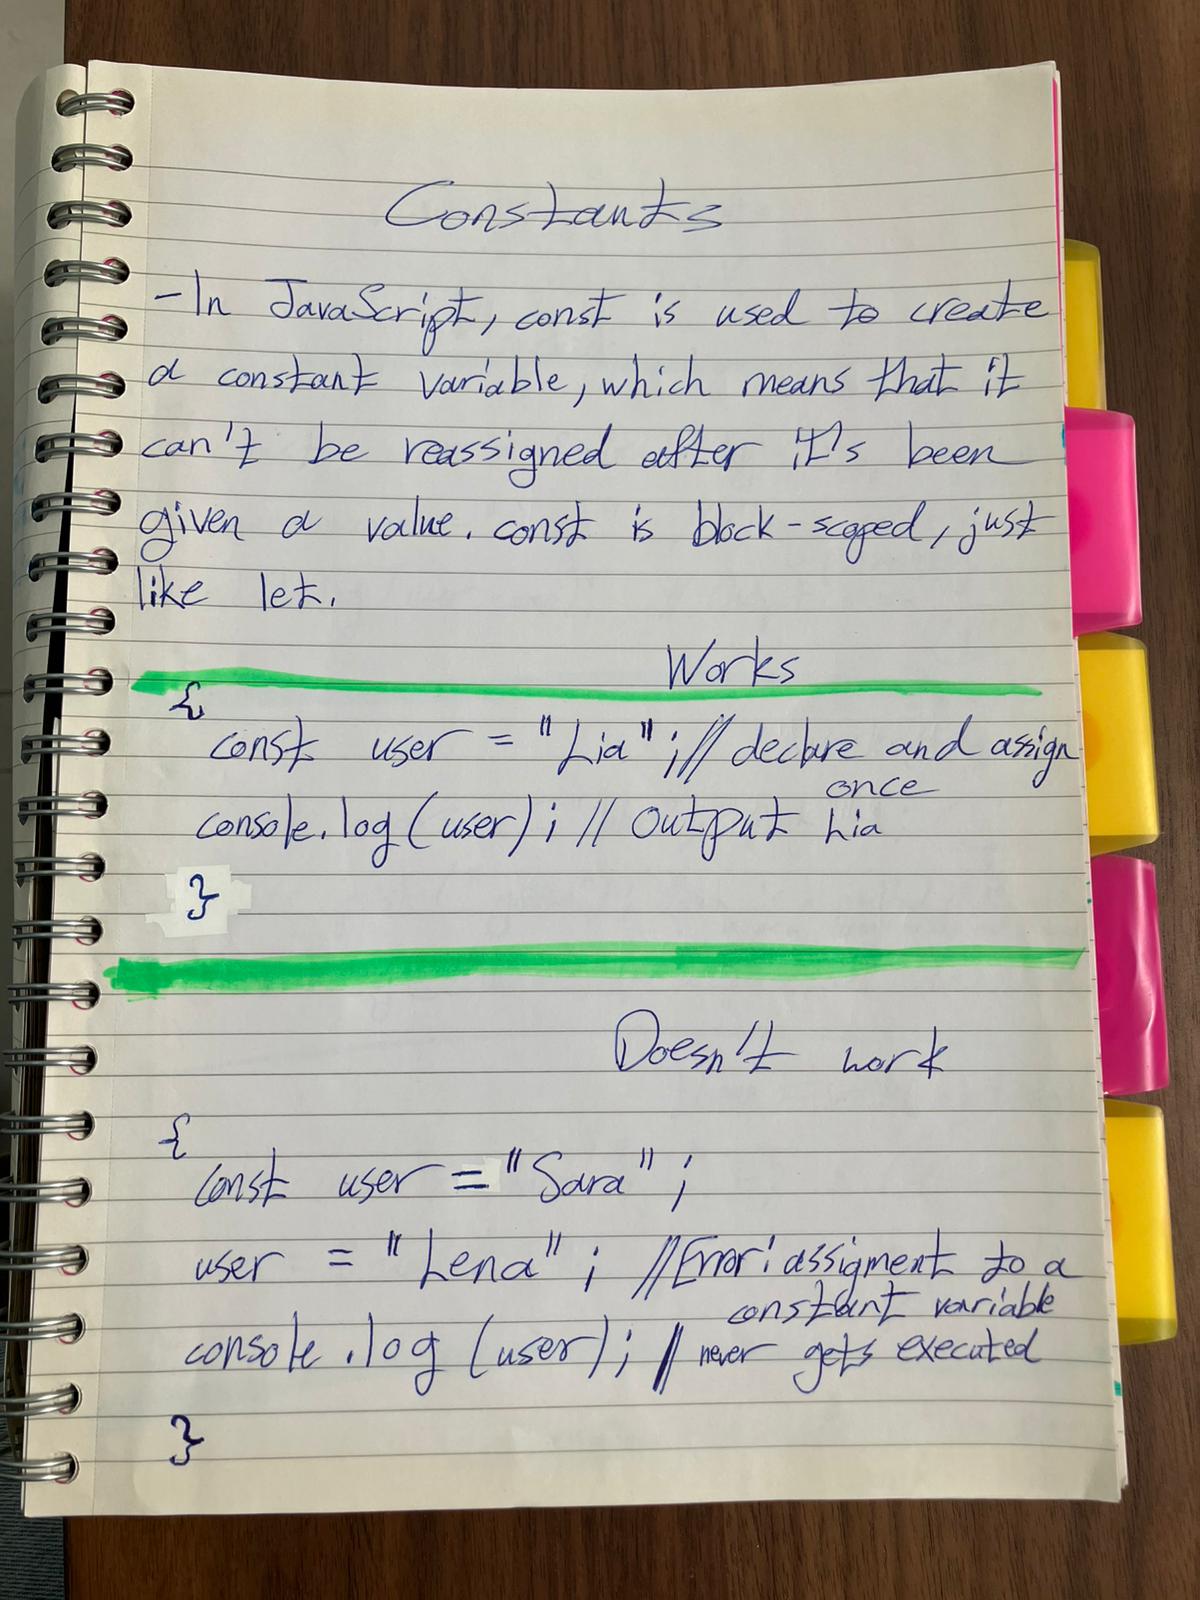 Constants
-In JavaScript, const is used to create
a constant variable, which means that it
can't be reassigned after it's been
given a value. const is block-scoped, just
like let.
Works
{
const user = "Lia";// declare and assign
once
console.log(user); // Output Lia
}
Doesn't work
{
const user = "Sara";
user = "Lena"; //Error: assigment to a
constant variable
console.log (user); // never gets executed
}